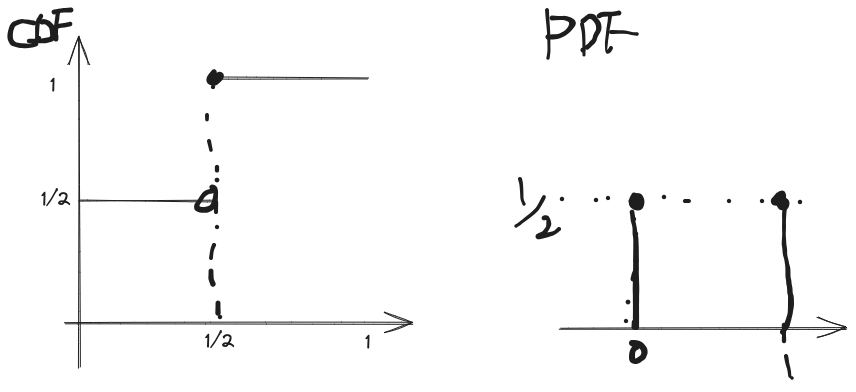 CDF
1
1/2
1/2
1
PDF
1/2
0
1